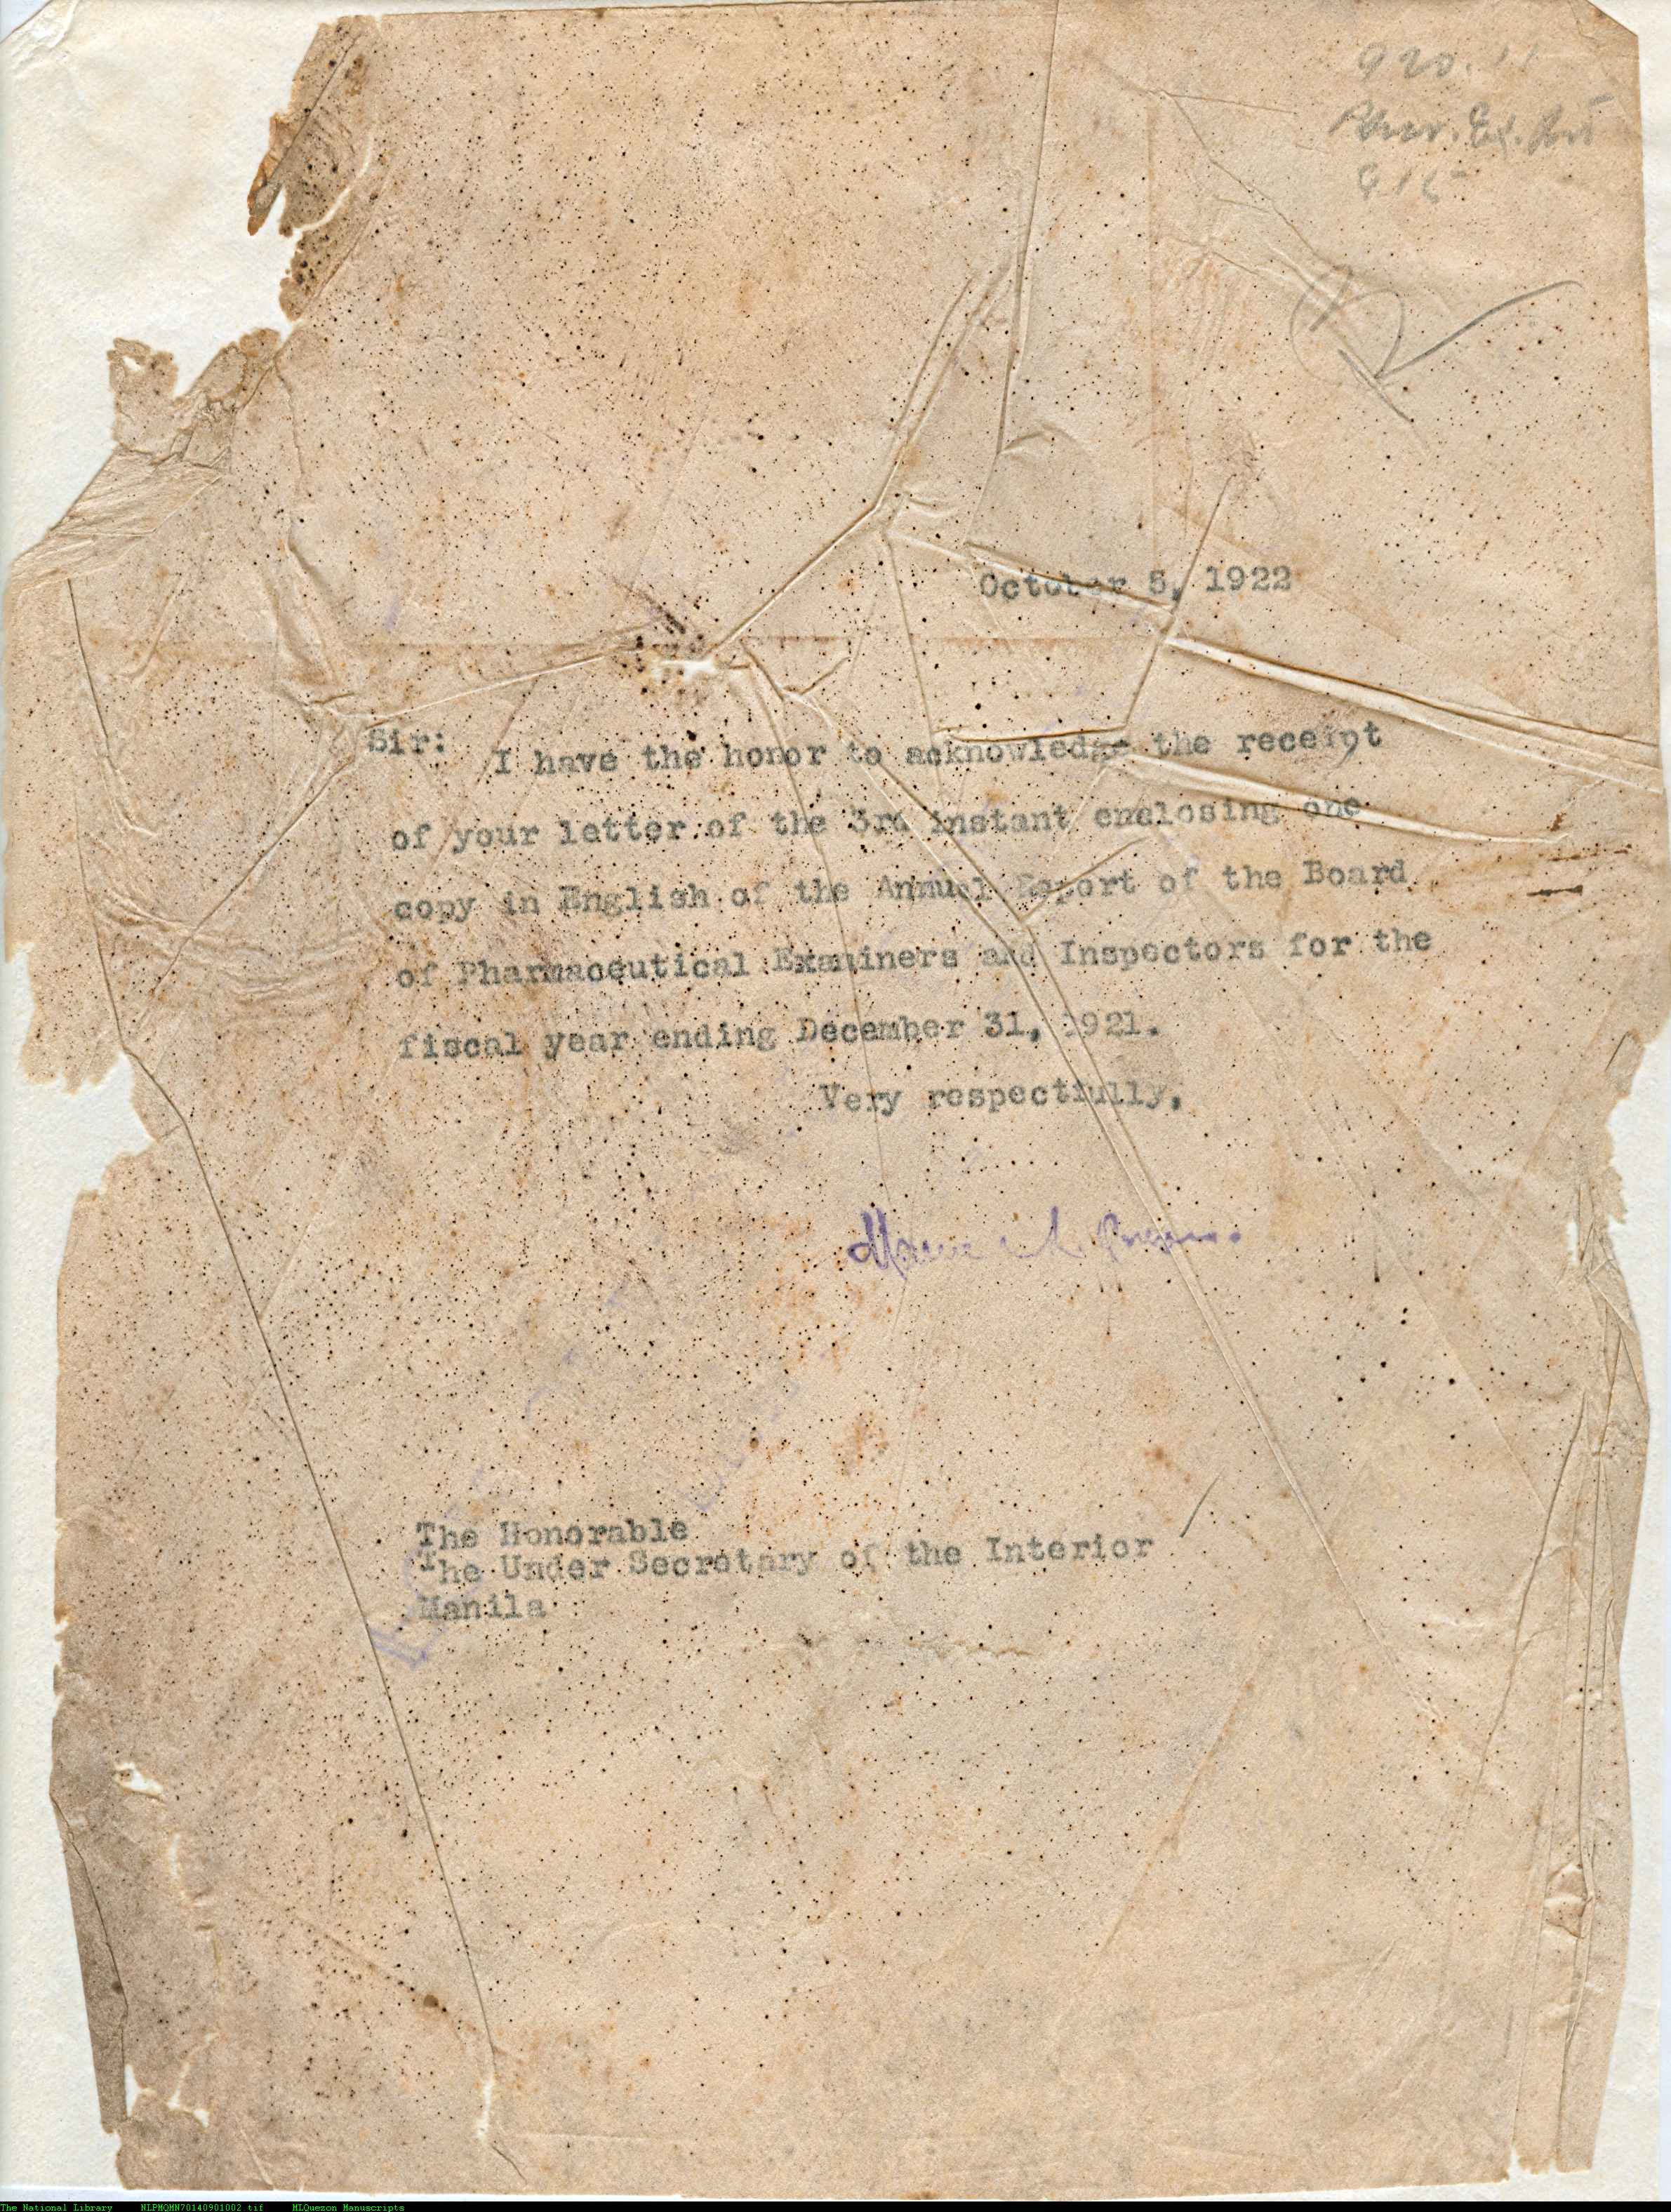 October 5, 1922
Sir: I have the honor to acknowledge the receipt
of your letter of the 3rd instant enclosing one
copy in English of the Annual Report of the Board
of Pharmaceutical Examiners and Inspectors for the
fiscal year ending December 31, 1921.
Very respectfully,
The Honorable
The Under Secretary of the Interior
Manila
The National Library NLPMQMN70140901002.tif MLQuezon Manuscripts